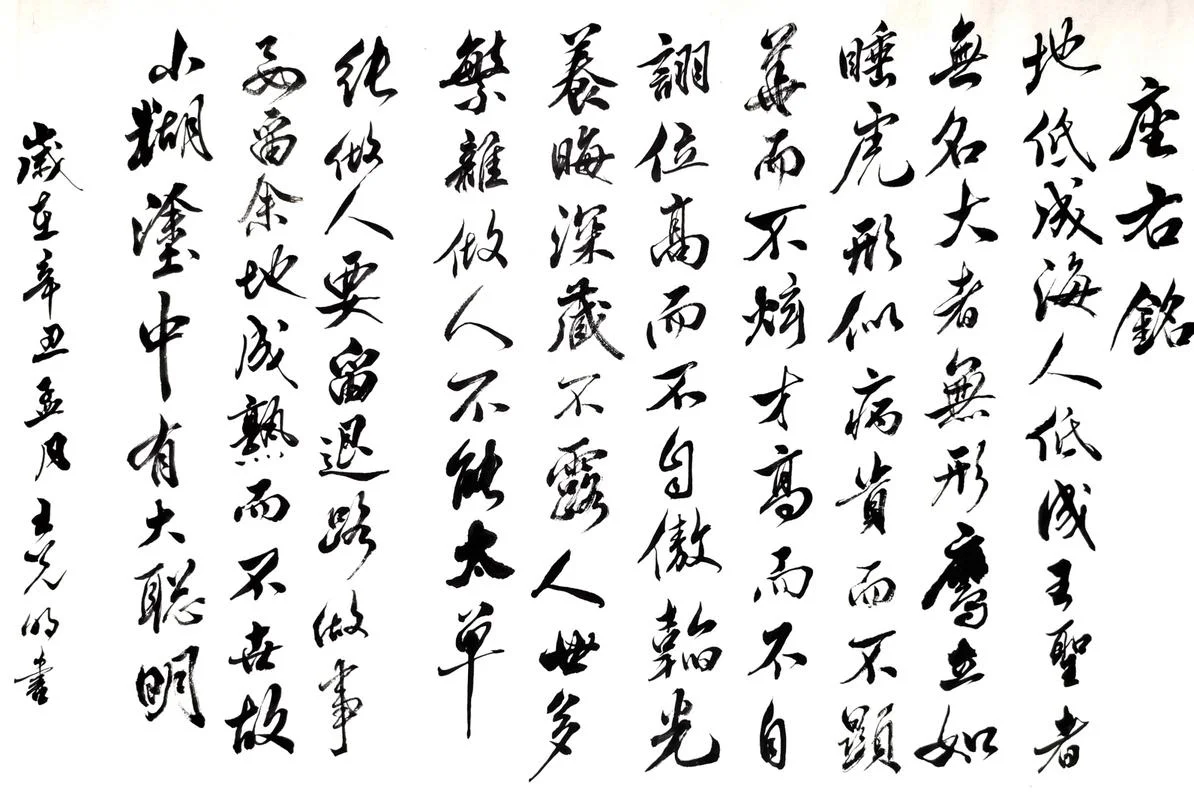 座右銘
地低成海人低成王聖者
無名大者無形鷹立如
睡虎形似病貴而不顕
華而不炫才高而不自
詡位高而不自傲韜光
養晦深藏不露人世多
繁雜做人不能太单
純做人要留退路做事
要留余地成熟而不世故
小糊塗中有大聪明
歲在辛丑孟月王明書